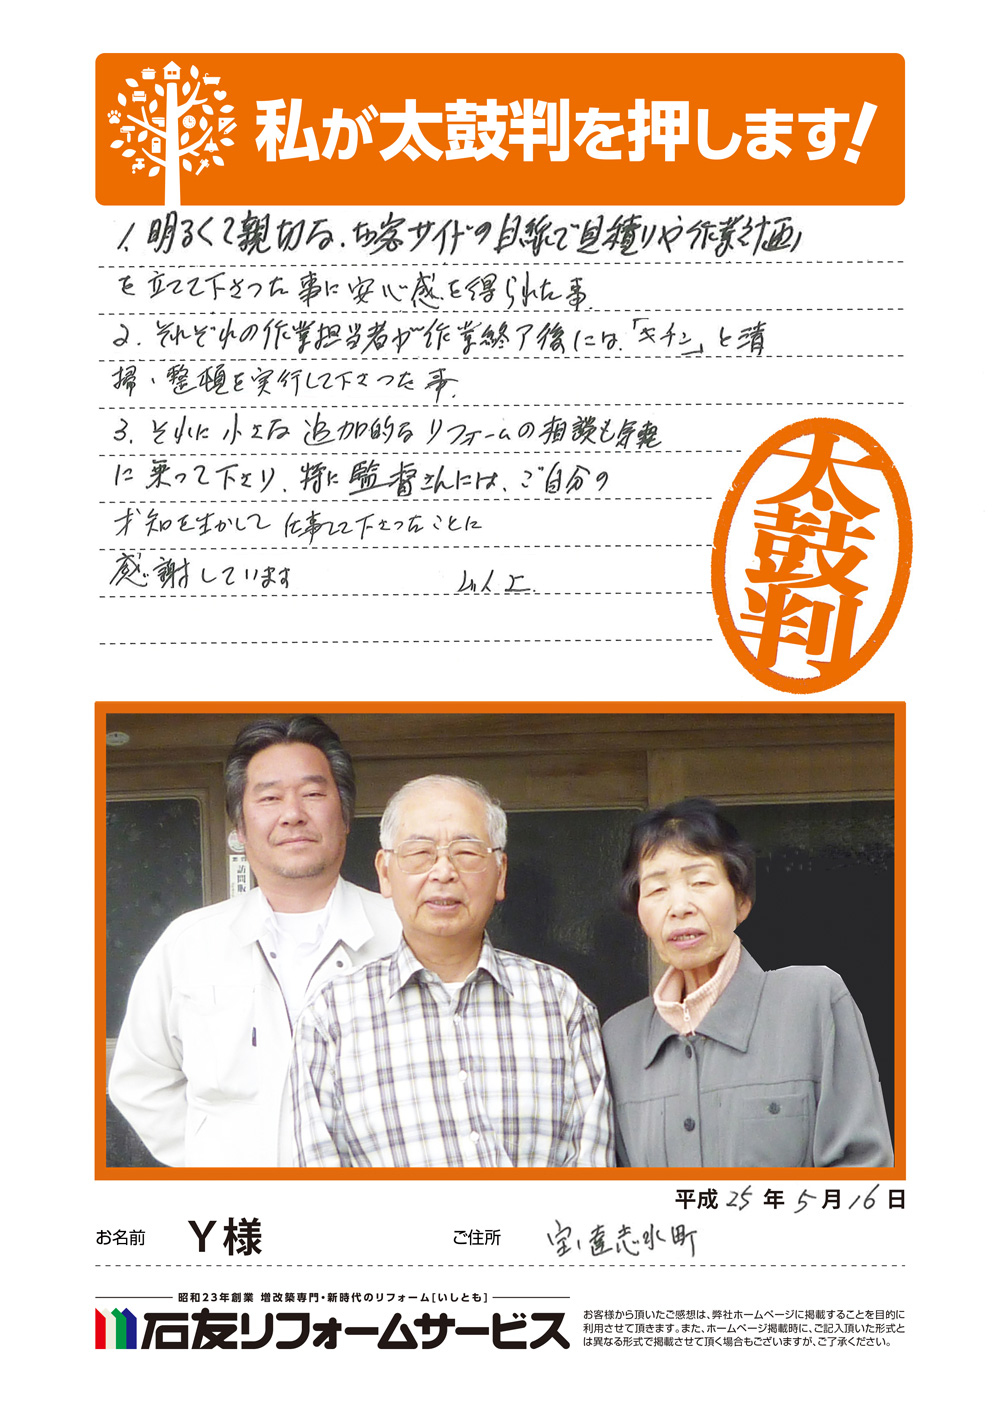 私が太鼓判を押します!
1. 明るくて親切な、お客サイドの目線で見積りや作業計画
を立てて下さった事に安心感を得られた事.
2. それぞれの作業担当者が作業終了後には、「キチン」と清
掃、整頓を実行して下さった事.
3. それに小さな追加的なリフォームの相談も気軽
に乗って下さり、特に監督さんには、ご自分の
才知を生かして仕事して下さったことに
感謝しています 以上.
太鼓判
訪問販
平成25年5月16日
お名前 Y様 ご住所 宝達志水町
昭和23年創業 増改築専門・新時代のリフォーム[いしとも]
石友リフォームサービス
お客様から頂いたご感想は、弊社ホームページに掲載することを目的に
利用させて頂きます。また、ホームページ掲載時に、ご記入頂いた形式と
は異なる形式で掲載させて頂く場合もございますが、ご了承ください。